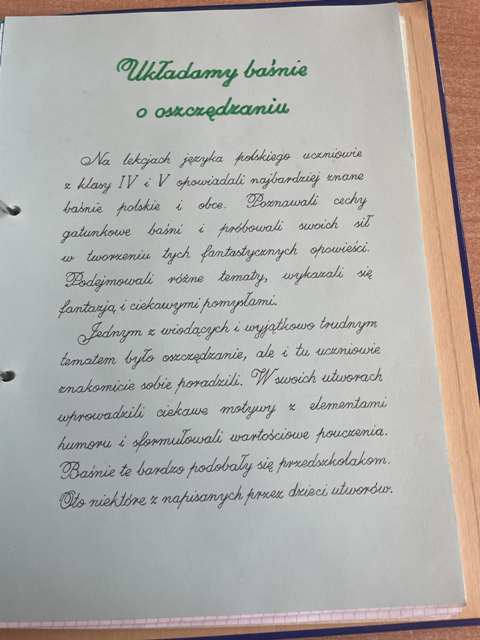 Układamy baśnie
o oszczędzaniu
Na lekcjach języka polskiego uczniowie
z klasy IV i V opowiadali najbardziej znane
baśnie polskie i obce. Poznawali cechy
gatunkowe baśni i próbowali swoich sił
w tworzeniu tych fantastycznych opowieści.
Podejmowali różne tematy, wykazali się
fantazją i ciekawymi pomysłami.
Jednym z wiodących i wyjątkowo trudnym
tematem było oszczędzanie, ale i tu uczniowie
znakomicie sobie poradzili. W swoich utworach
wprowadzili ciekawe motywy z elementami
humoru i sformułowali wartościowe pouczenia.
Baśnie te bardzo podobały się przedszkolakom.
Oto niektóre z napisanych przez dzieci utworów.